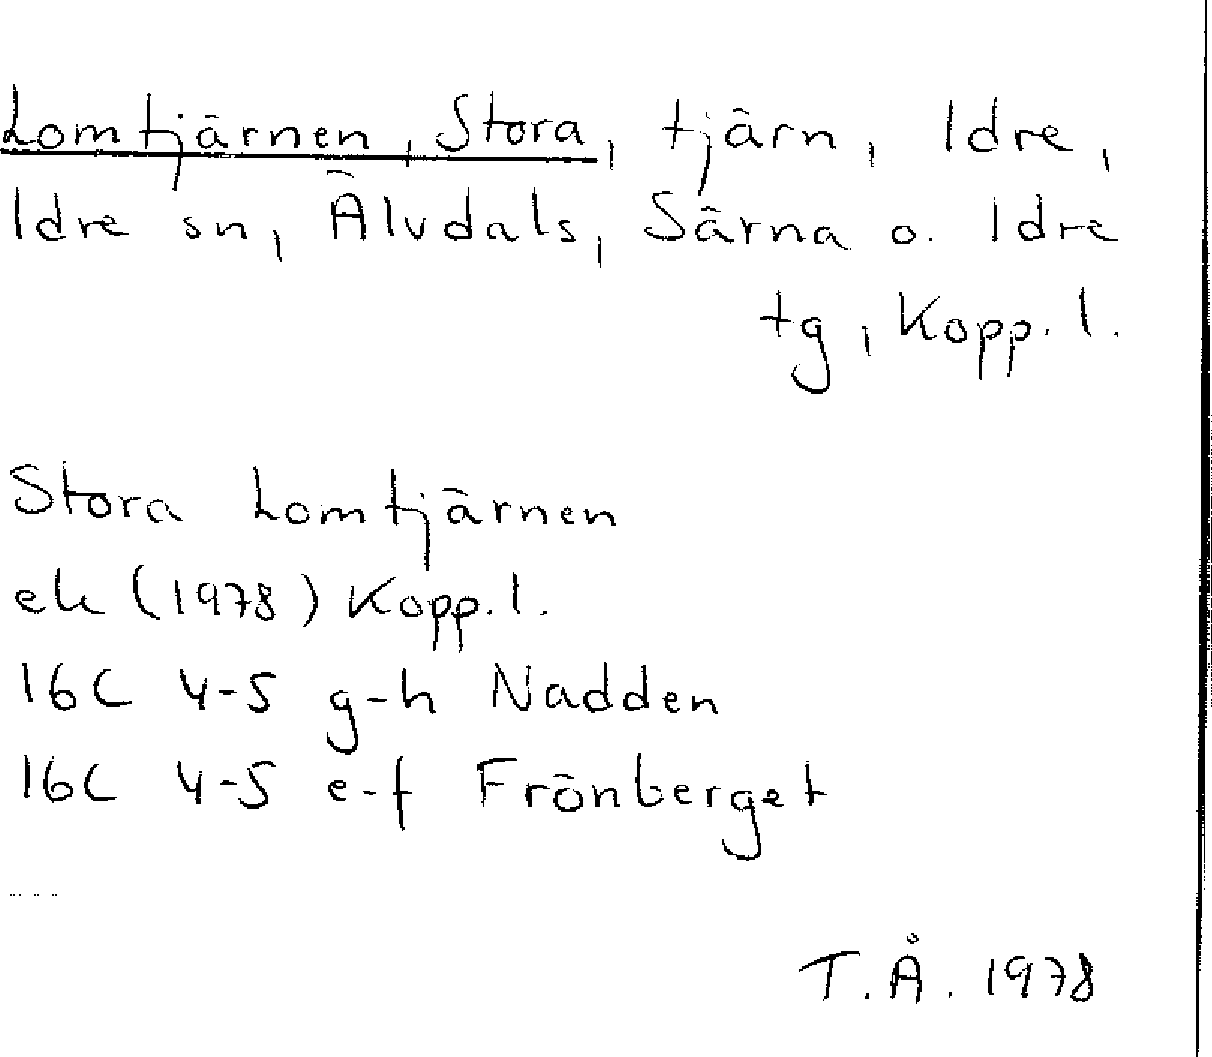 Lomtjärnen, Stora, tjärn, Idre,
Idre sn, Älvdals, Särna o. Idre
tg, Kopp. l.
Stora Lomtjärnen
ek (1978) Kopp. l.
16C 4-5 g-h Nadden
16C 4-5 e-f Frönberget
T. Å. 1978